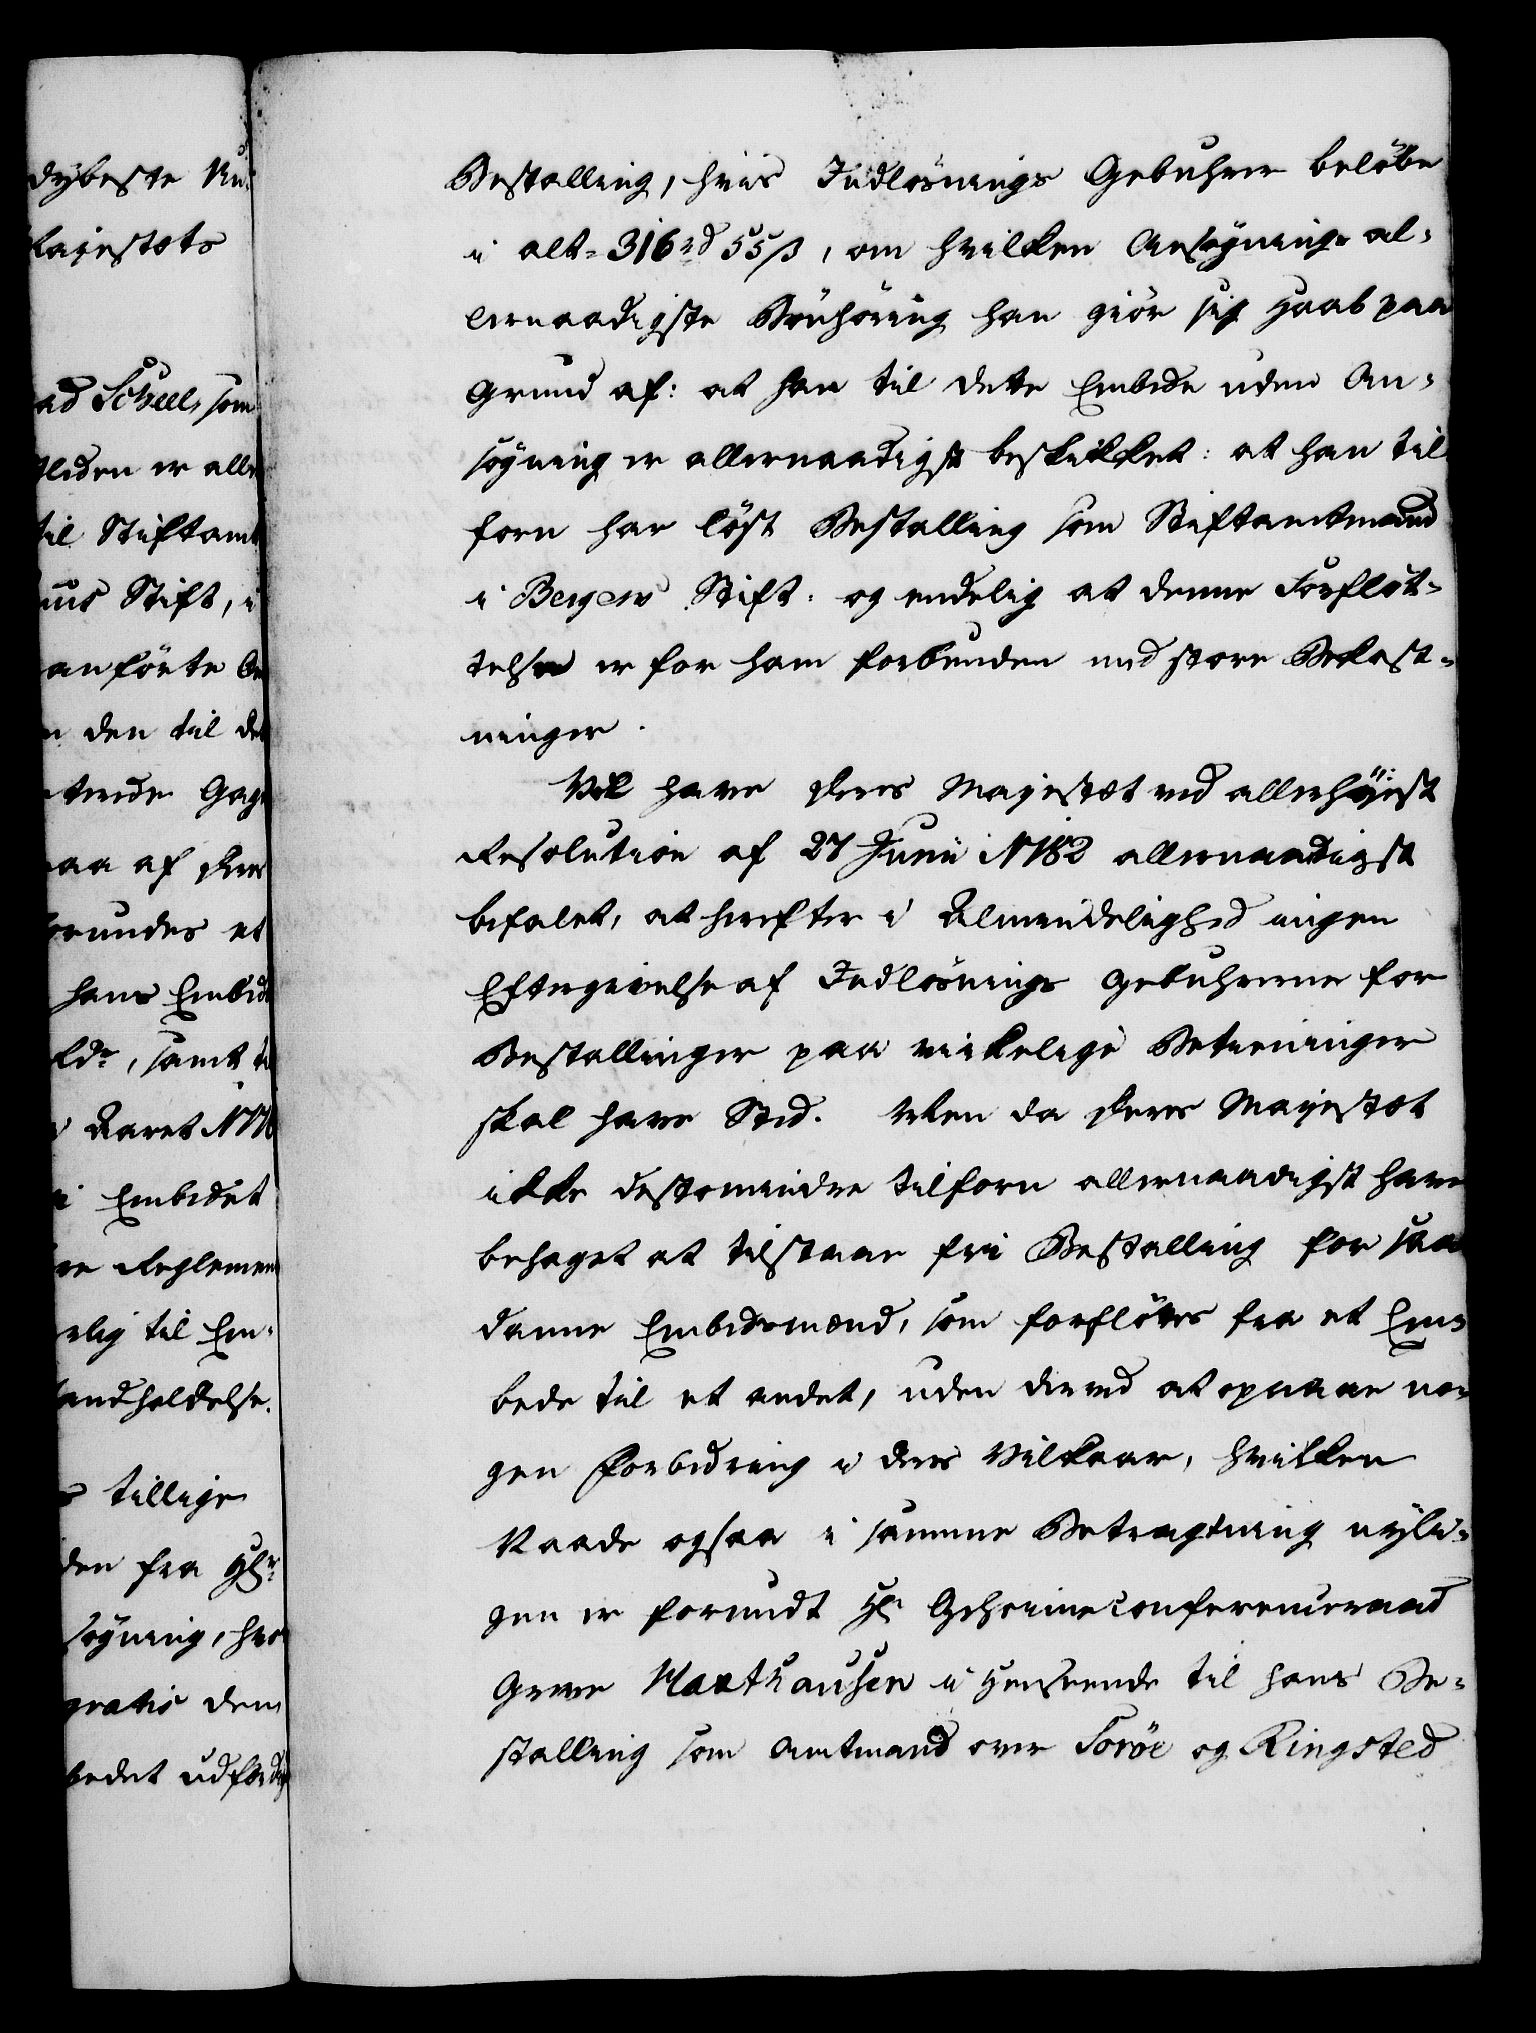 dybeste Un¬
Majestæts
ad Scheel, som
tliden er aller
til Stiftamt
uus Stift, i
anförte An
n den til det
tende Gage
paa af Deres
grundes et
hans Embede
Ldr, samt t
i Aaret 177
i Embedet
re Reglement
rlig til Em¬
andholdelse.
s tillige
den fra Hr
søgning, hvo
gratis den
bedet udfærdig
Bestalling, hvis Indlösnings Gebuhrer beløbe
i alt 316 rd 55 ß, om hvilken Ansøgnings al¬
lernaadigste Bønhöring han giör sig Haab paa
Grund af: at han til dette Embede uden An¬
søgning er allernaadigst beskikket: at han til
forn har löst Bestalling som Stiftamtmand
i Bergens Stift. og endelig at denne Forflöt¬
telse er for ham forbunden med store Bekost¬
ninger.
Vel have Deres Majestæt ved allerhöiest
Resolution af 27 Junii 1782 allernaadigst
befalet, at herefter i Almindelighed ingen
Eftergivelse af Indlösnings Gebuhrerne for
Bestallinger paa virkelige Betieninger
skal have Sted. Men da Deres Majestæt
ikke destomindre tilforn allernaadigst have
behaget at tilstaae fri Bestalling for saa
danne Embedsmænd, som forflöttes fra et Em¬
bede til et andet, uden derved at opnaae no¬
gen Forbedring i deres Vilkaar, hvilken
Naade ogsaa i samme Betragtning nyli¬
gen er forundt Hr Geheimeconferenceraad
Greve Haxthausen i Henseende til hans Be¬
stalling som Amtmand over Soröe og Ringsted